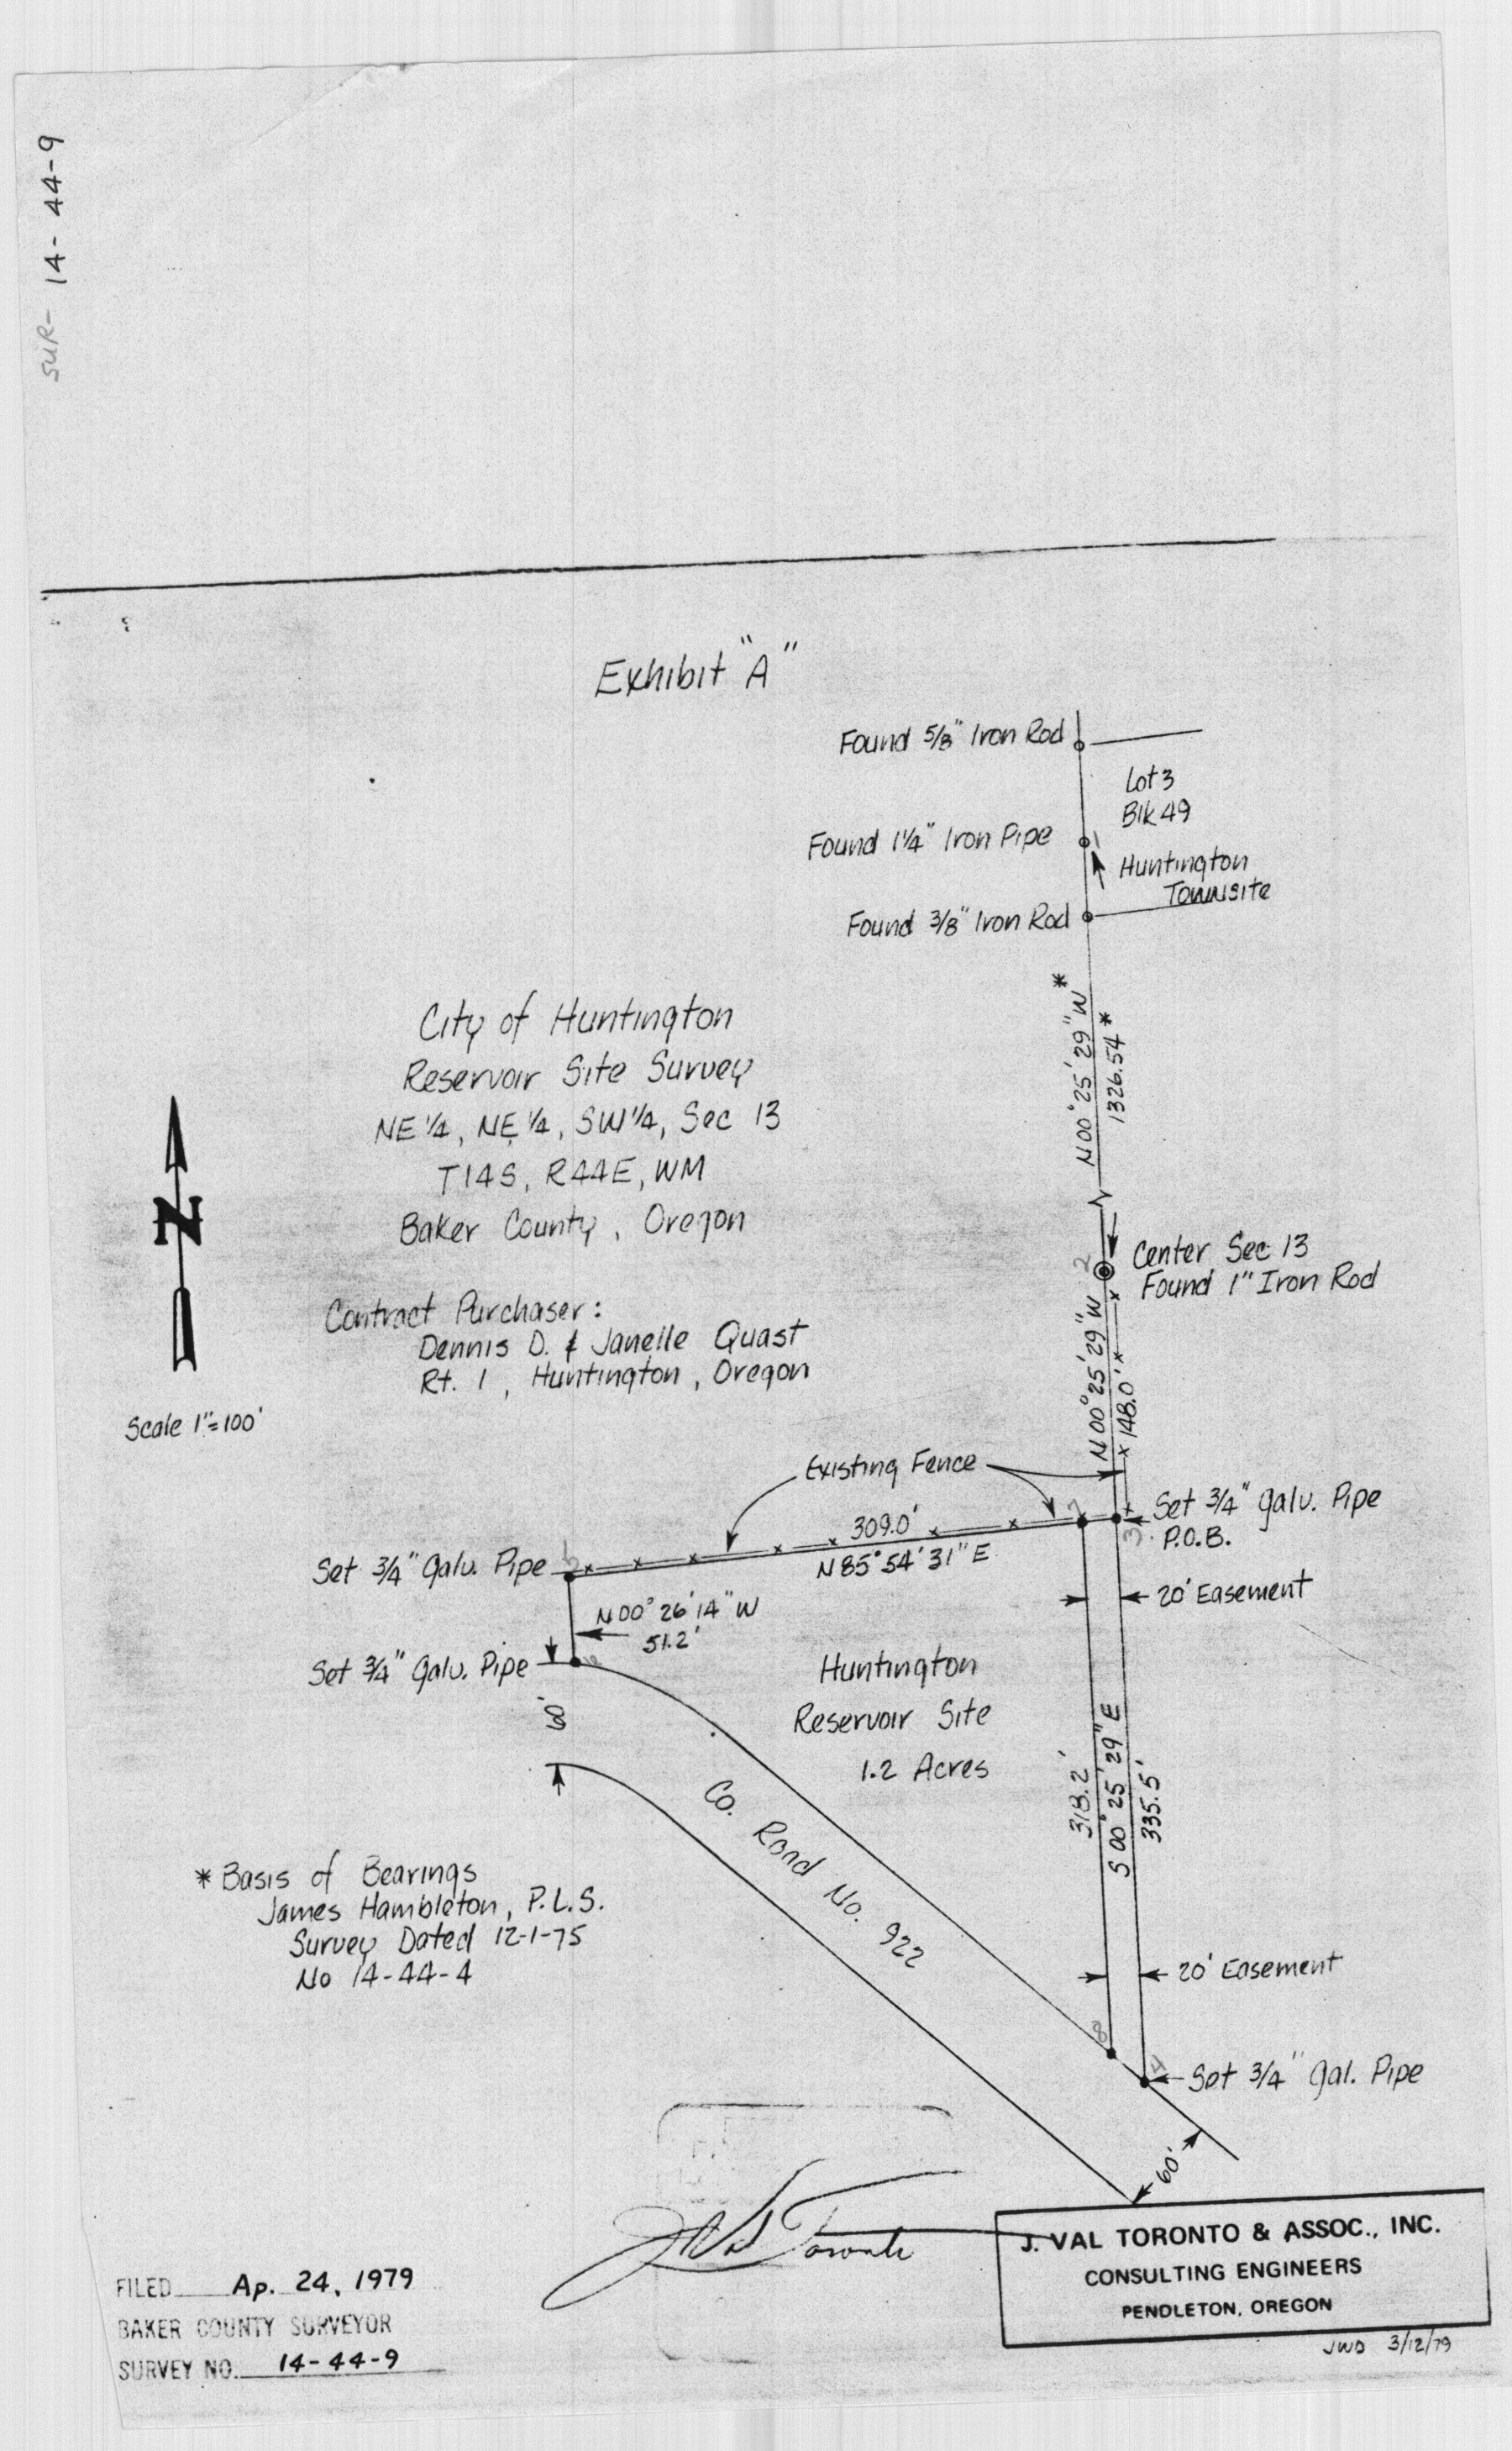 SUR- 14-44-9
Exhibit "A"
Found 5/8" Iron Rod
Lot 3
Blk 49
Found 1 1/4" Iron Pipe
1
Huntington
Townsite
Found 3/8" Iron Rod
N 00° 25' 29" W *
1326.54 *
City of Huntington
Reservoir Site Survey
NE 1/4, NE 1/4, SW 1/4, Sec 13
T14S, R44E, WM
Baker County, Oregon
N
Scale 1"=100'
Contract Purchaser:
Dennis D. & Janelle Quast
Rt. 1, Huntington, Oregon
2
Center Sec 13
Found 1" Iron Rod
N 00° 25' 29" W
148.0'
Existing Fence
309.0'
N 85° 54' 31" E
7
Set 3/4" Galv. Pipe
3
P.O.B.
Set 3/4" Galv. Pipe
20' Easement
N 00° 26' 14" W
51.2'
Set 3/4" Galv. Pipe
60'
Huntington
Reservoir Site
1.2 Acres
318.2'
S 00° 25' 29" E
335.5'
Co. Road No. 922
* Basis of Bearings
James Hambleton, P.L.S.
Survey Dated 12-1-75
No 14-44-4
20' Easement
8
4
Set 3/4" Gal. Pipe
60'
J Val Toronto
J. VAL TORONTO & ASSOC., INC.
CONSULTING ENGINEERS
PENDLETON, OREGON
JWD 3/12/79
FILED Ap. 24, 1979
BAKER COUNTY SURVEYOR
SURVEY NO. 14-44-9